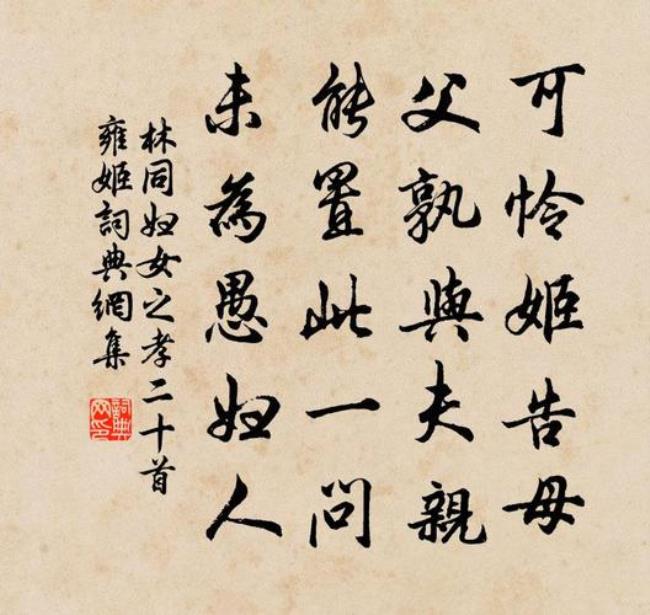 可怜姬告母
父孰與夫親
能置此一問
未為愚妇人
林同妇女之孝二十首
雍姬詞典網集
詞典网印